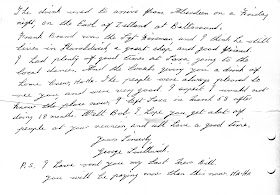 The drink used to arrive from Aberdeen on a Friday
night, on the Earl of Zetland at Baltasound.
Frank Bond was the Sgt Fireman and I think he still
lives in Huddersfield a great chap and good friend
I had plenty of good times at Saxa, going to the
local dances. And the Shacks going round a drink of
home brew, Ha Ha. The people were always pleased to
see you and were very good. I expect I would not
know the place now, I left Saxa in March 58 after
doing 18 months. Well Bob I hope you get alot of
people at your reunion and all have a good time.
Yours Sincerely
George Smallwood.
P.S. I have sent you my last Beer Bill.
You will be paying more than this now Ha Ha